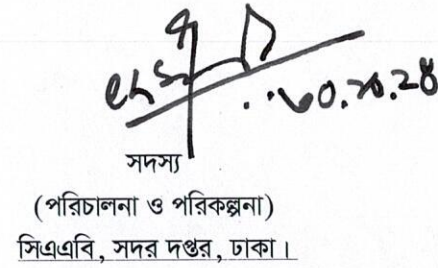 সদস্য
(পরিচালনা ও পরিকল্পনা)
সিএএবি, সদর দপ্তর, ঢাকা।